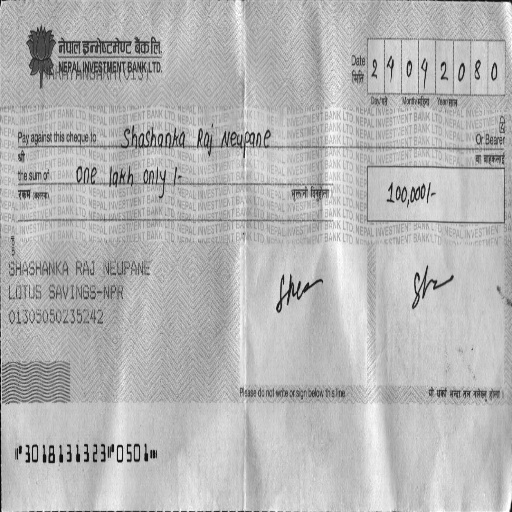 नेपाल इन्भेष्टमेण्ट बैंक लि.
NEPAL INVESTMENT BANK LTD.
Date 24042080
मिति
Day/गते Month/महिना Year/साल
Pay against this cheque to Shashanka Raj Neupane Or Bearer
श्री वा वाहकलाई
the sum of One lakh only /- 100,000/-
रकम (अक्षरमा)
SHASHANKA RAJ NEUPANE
LOTUS SAVINGS-NPR
01305050235242
Please do not write or sign below this line
⑈3018131323⑈0501⑈